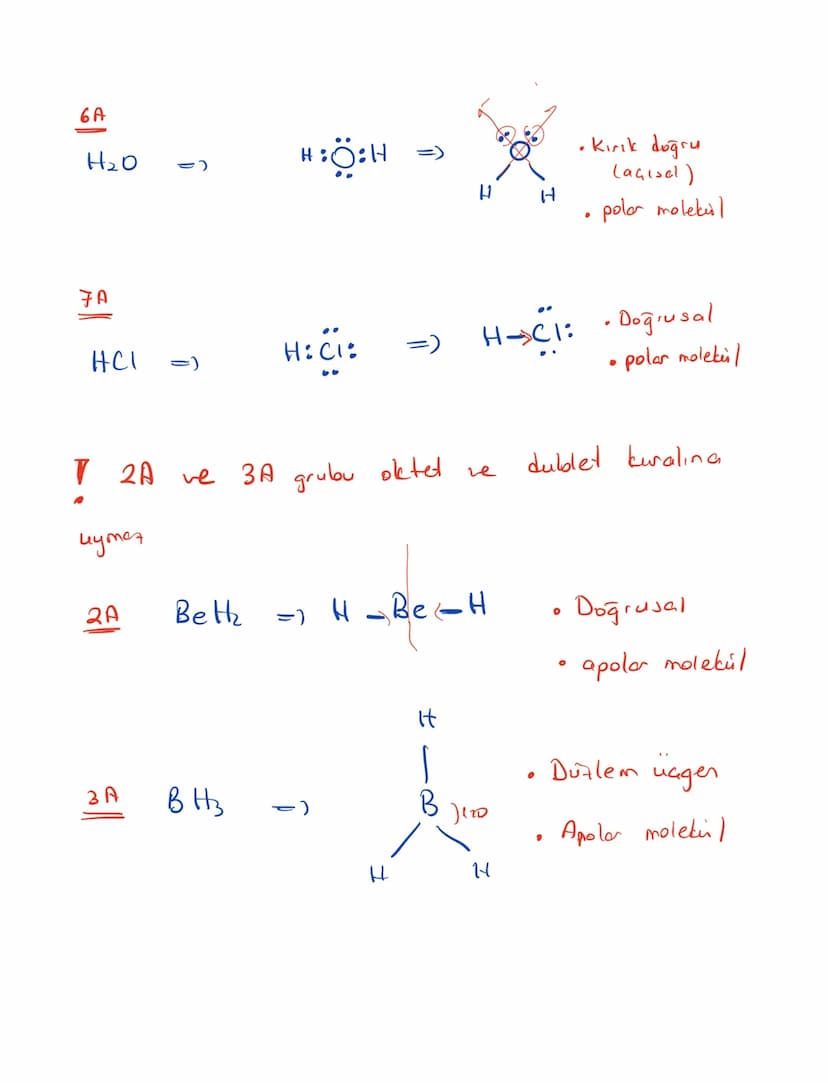 6A
H₂O => H:O:H => • Kırık doğru
(açısal)
H H
• polar molekül
7A
HCl => H:Cl: => H→Cl: • Doğrusal
• polar molekül
! 2A ve 3A grubu oktet ve dublet kuralına
uymaz
2A BeH₂ => H-Be-H • Doğrusal
• apolar molekül
H
• Düzlem üçgen
3A BH₃ => B )120
• Apolar molekül
H H